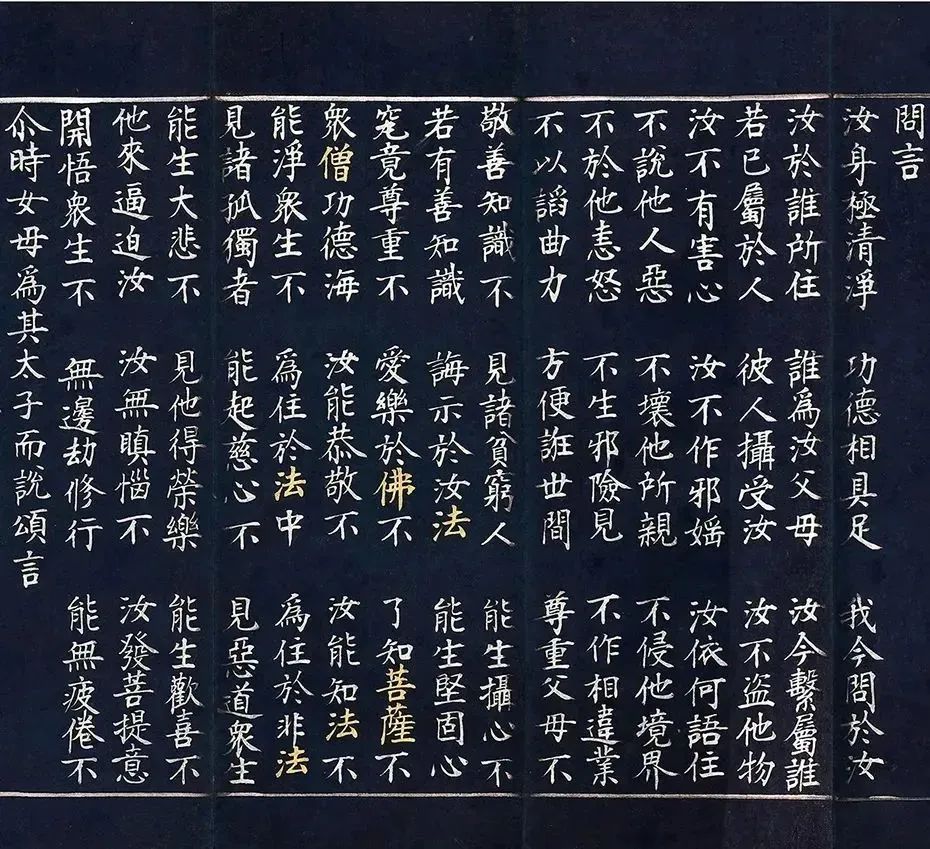 問言
汝身極清淨 功德相具足 我今問於汝
汝於誰所住 誰為汝父母 汝今繫屬誰
若已屬於人 彼人攝受汝 汝不盜他物
汝不有害心 汝不作邪婬 汝依何語住
不說他人惡 不壞他所親 不侵他境界
不於他恚怒 不生邪險見 不作相違業
不以謟曲力 方便誑世間 尊重父母不
敬善知識不 見諸貧窮人 能生攝心不
若有善知識 誨示於汝法 能生堅固心
究竟尊重不 愛樂於佛不 了知菩薩不
眾僧功德海 汝能恭敬不 汝能知法不
能淨眾生不 為住於法中 為住於非法
見諸孤獨者 能起慈心不 見惡道眾生
能生大悲不 見他得榮樂 能生歡喜不
他來逼迫汝 汝無瞋惱不 汝發菩提意
開悟眾生不 無邊劫修行 能無疲倦不
尒時女母為其太子而說頌言